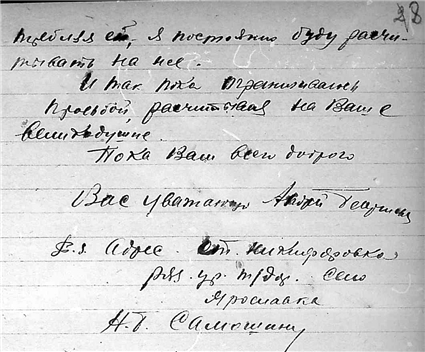 8
я постоянно буду расчи-
тывать на нее.
И так пока ограничиваюсь
просьбой, расчитывая на Ваше
великодушие.
Пока Вам всего доброго
Вас уважающ Андрей
Адрес ст. Никифоровка,
ряз. ур. ж/д. село
Ярославка
Н. Г. Самошину